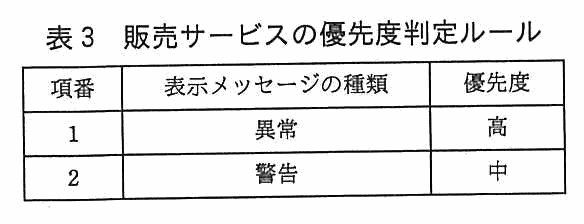 表3　販売サービスの優先度判定ルール
項番　表示メッセージの種類　優先度
1　異常　高
2　警告　中